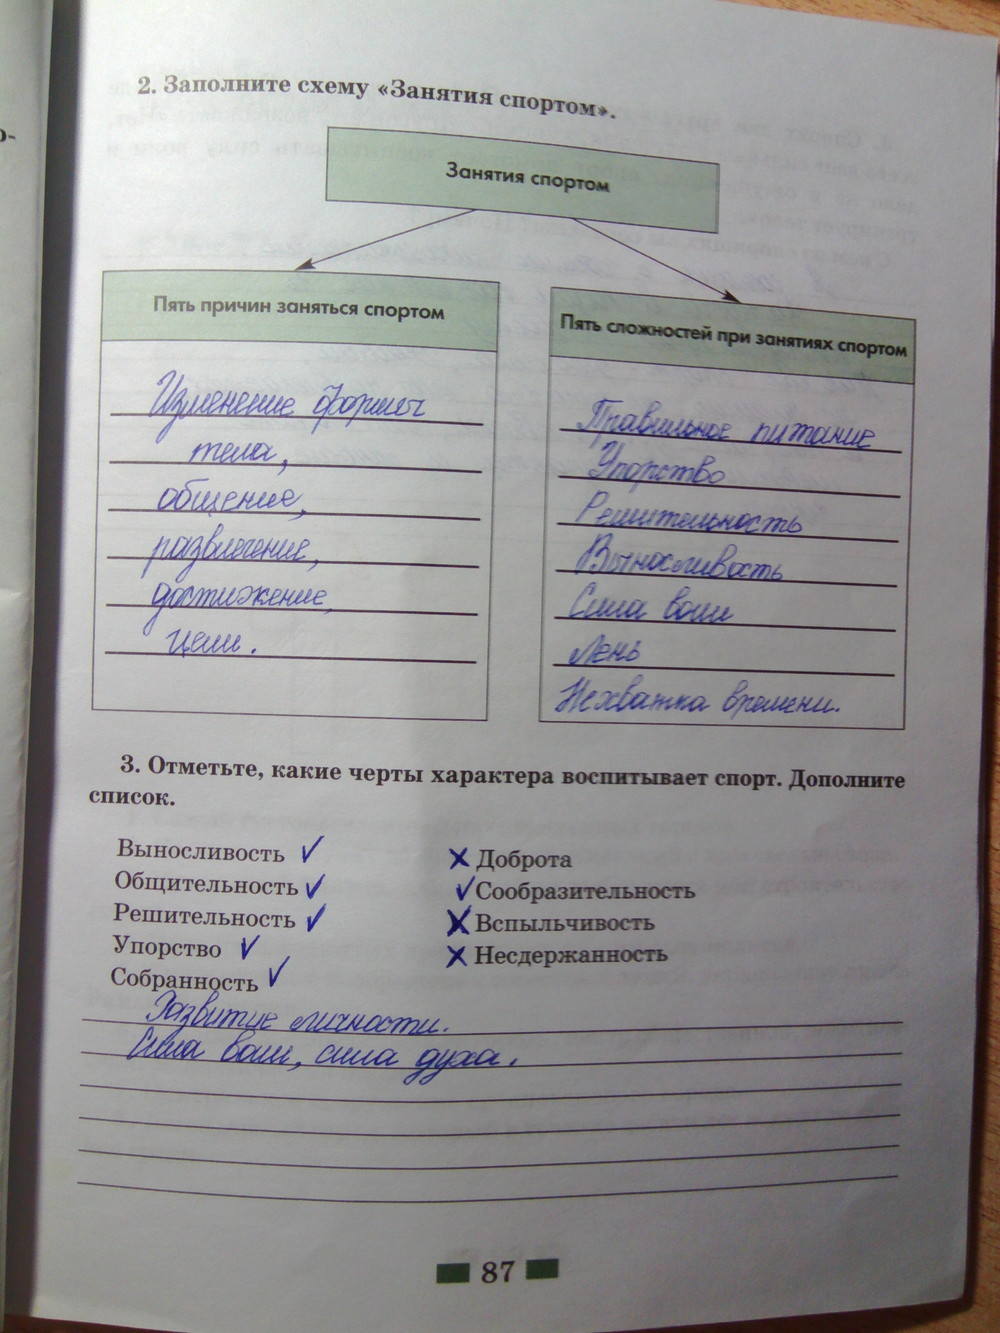 о-
2. Заполните схему «Занятия спортом».
Занятия спортом
Пять причин заняться спортом
Изменение формы
тела,
общение,
развлечение,
достижение,
цели.
Пять сложностей при занятиях спортом
Правильное питание
Упорство
Решительность
Выносливость
Сила воли
Лень
Нехватка времени.
3. Отметьте, какие черты характера воспитывает спорт. Дополните
список.
Выносливость ✓
Общительность ✓
Решительность ✓
Упорство ✓
Собранность ✓
✗ Доброта
✓ Сообразительность
✗ Вспыльчивость
✗ Несдержанность
Развитие личности.
Сила воли, сила духа.
87